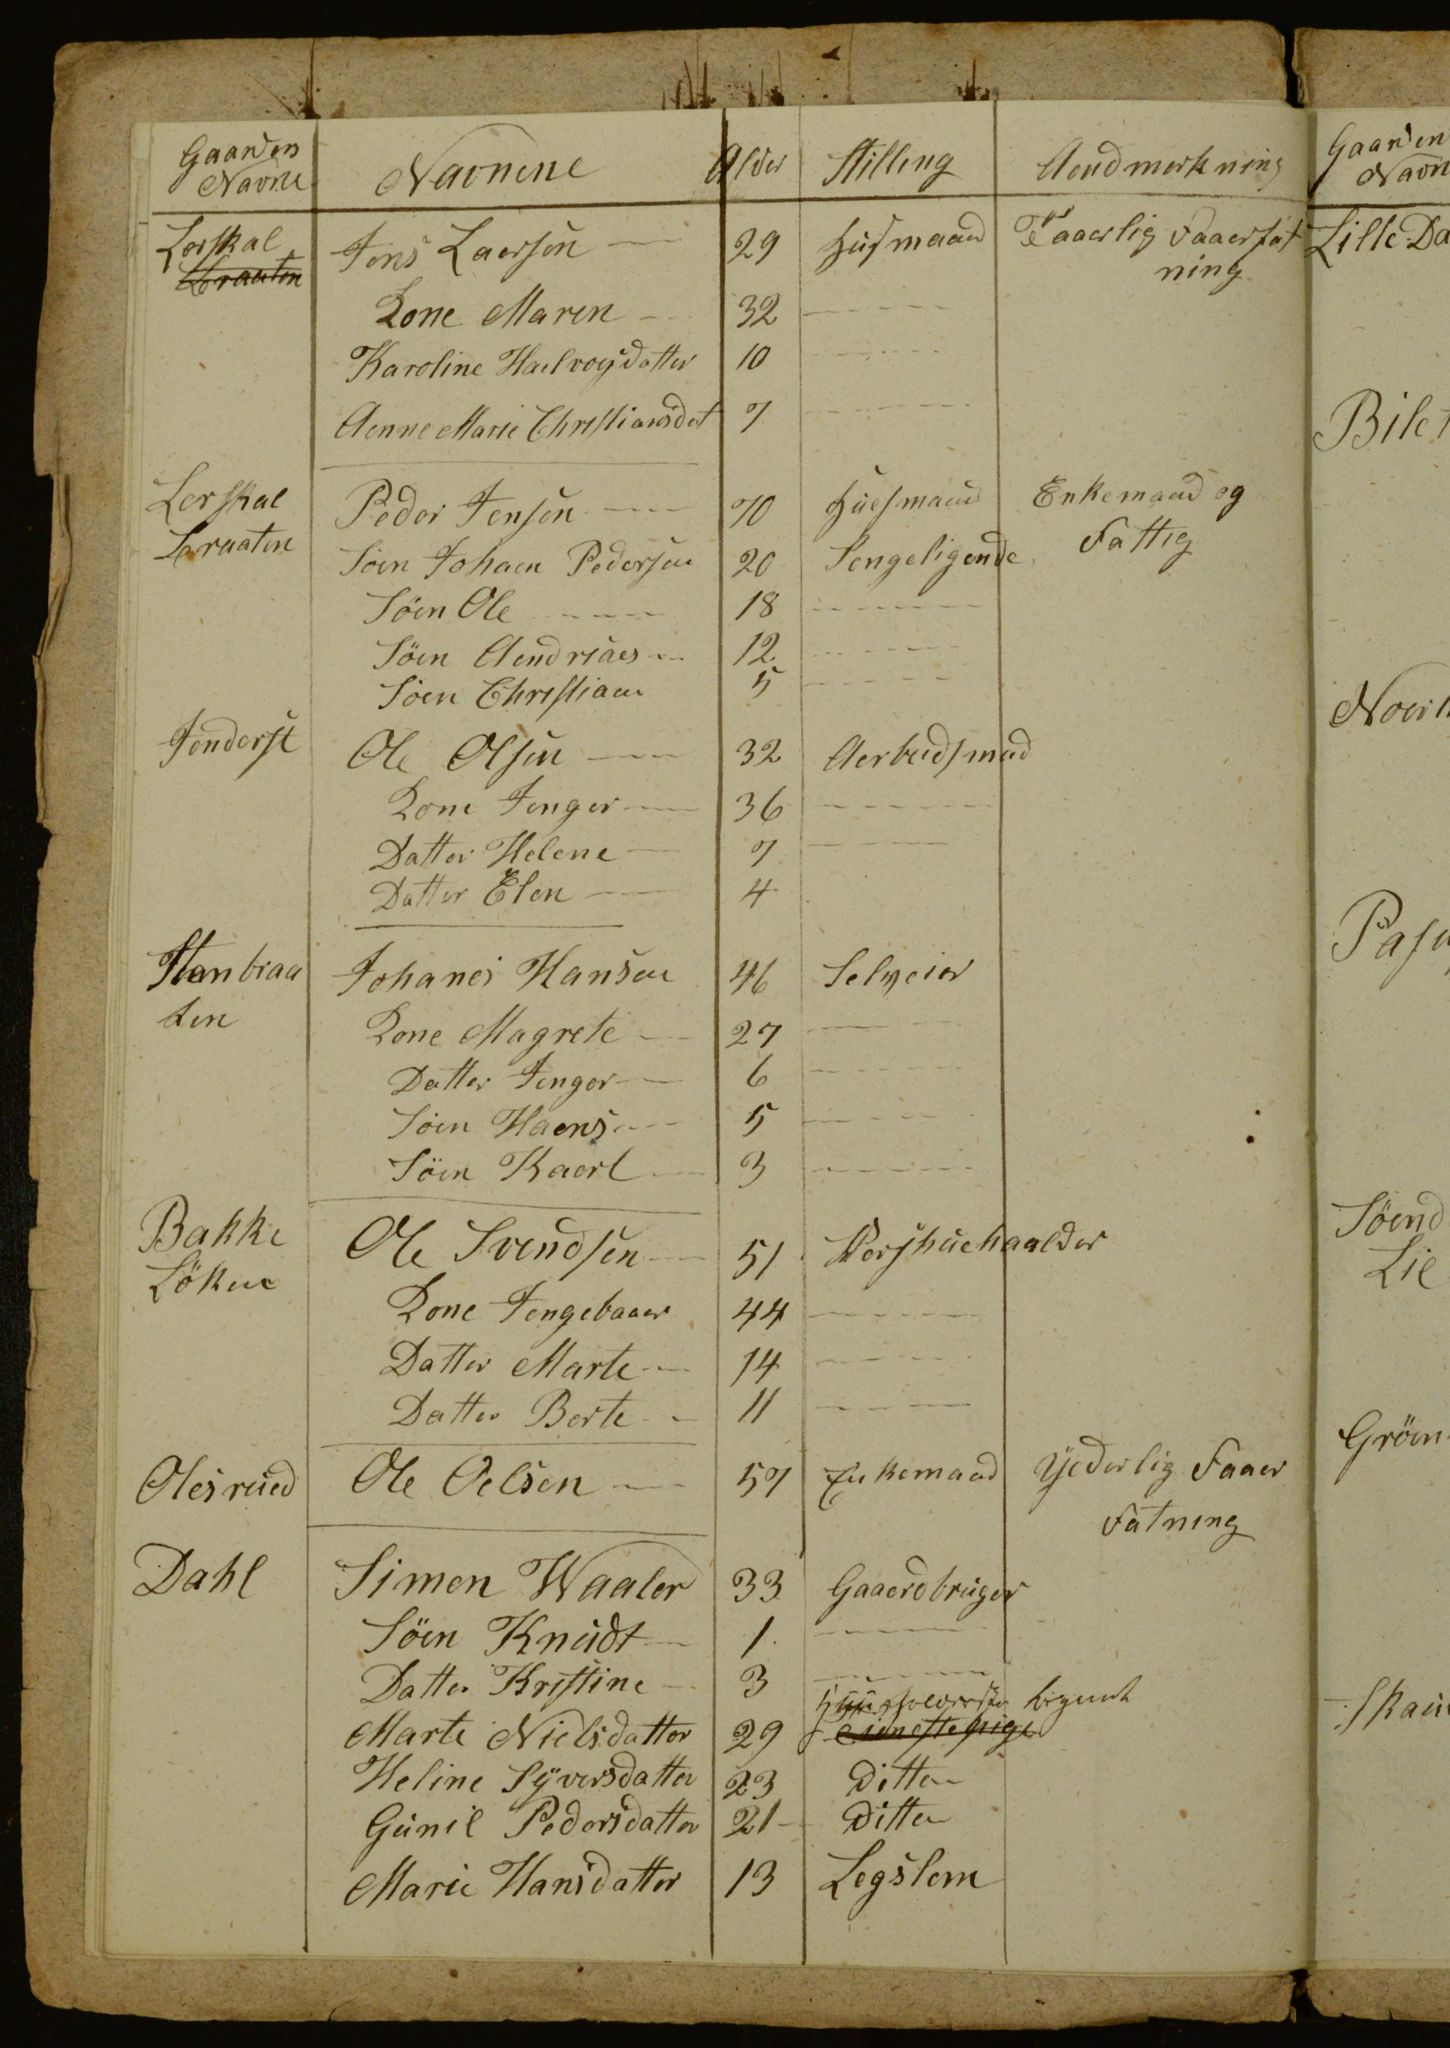 Gaarden Navne Navnene Alder Stilling Aendmerkning
Lerskal Jens Laersen 29 Husmand Taaerlig Faaerfat
Braaten ning
Kone Maren 32
Karoline Haelvorsdatter 10
Aenne Marie Christiansdat 7
Lerskal Peder Jensen 70 Huesmand Enkemand og
Braaten Fattig
Søen Johaen Pedersen 20 Sengeligende
Søen Ole 18
Søen Aendriaes 12
Søen Christiaen 5
Ole Olsen 32 Aerbeidsmad
Kone Jenger 36
Datter Helene 7
Datter Elen 4
Stenbraa Johanes Hansen 46 Selveier
ten
Kone Magrete 27
Datter Jenger 6
Søen Haens 5
Søen Kaerl 3
Bakke Ole Svendsen 51
Løken
Kone Jengebaaer 44
Datter Marte 14
Datter Berte 11
Olesrued Ole Oelsen 57 Enkemand Yederlig Faaer
Fatning
Dahl Simen Waaler 33 Gaaerdbruger
Søen Knudt 1
Datter Kristine 3
Marte Nielsdatter 29 Tienestepige
Heline Syversdatter 23 Ditto
Gunil Pedersdatter 21 Ditto
Marie Hansdatter 13 Legslem
Gaarden
Navn
Lille Da
Bile
Søend
Lie
Grøen